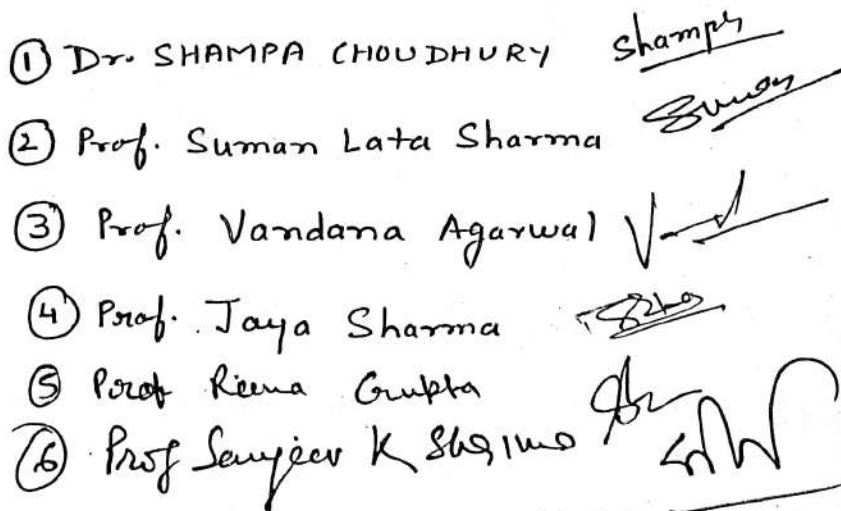 ① Dr. SHAMPA CHOUDHURY Shampa
② Prof. Suman Lata Sharma Suman
③ Prof. Vandana Agarwal
④ Prof. Jaya Sharma
⑤ Prof Reena Gupta
⑥ Prof Sanjeev K Sharma